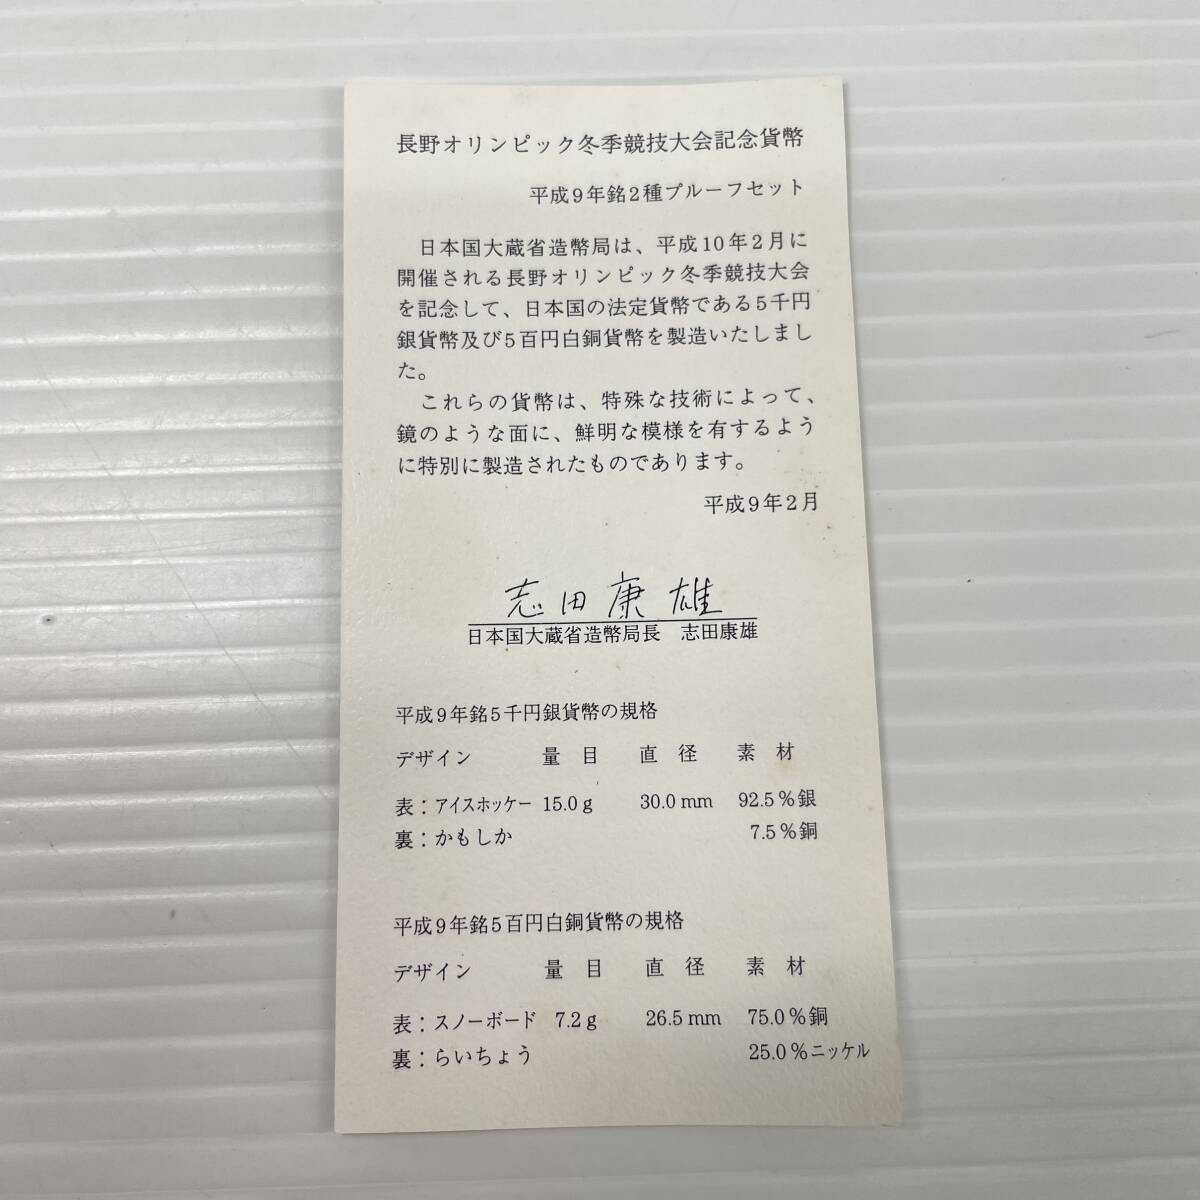 長野オリンピック冬季競技大会記念貨幣
平成9年銘2種プルーフセット
日本国大蔵省造幣局は、平成10年2月に
開催される長野オリンピック冬季競技大会
を記念して、日本国の法定貨幣である5千円
銀貨幣及び5百円白銅貨幣を製造いたしまし
た。
これらの貨幣は、特殊な技術によって、
鏡のような面に、鮮明な模様を有するよう
に特別に製造されたものであります。
平成9年2月
志田康雄
日本国大蔵省造幣局長 志田康雄
平成9年銘5千円銀貨幣の規格
デザイン 量目 直径 素材
表：アイスホッケー 15.0g 30.0mm 92.5%銀
裏：かもしか 7.5%銅
平成9年銘5百円白銅貨幣の規格
デザイン 量目 直径 素材
表：スノーボード 7.2g 26.5mm 75.0%銅
裏：らいちょう 25.0%ニッケル